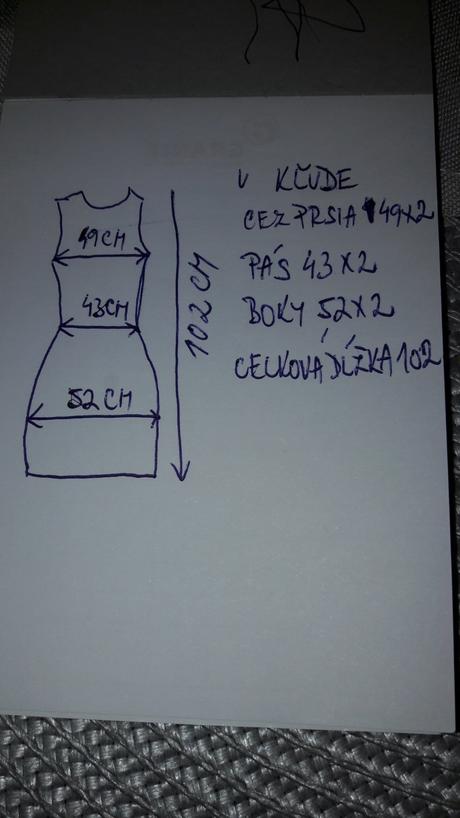 49CM
43CM
52CM
102CM
V KĽUDE
CEZ PRSIA 49X2
PÁS 43X2
BOKY 52X2
CELKOVÁ DĺŽKA 102